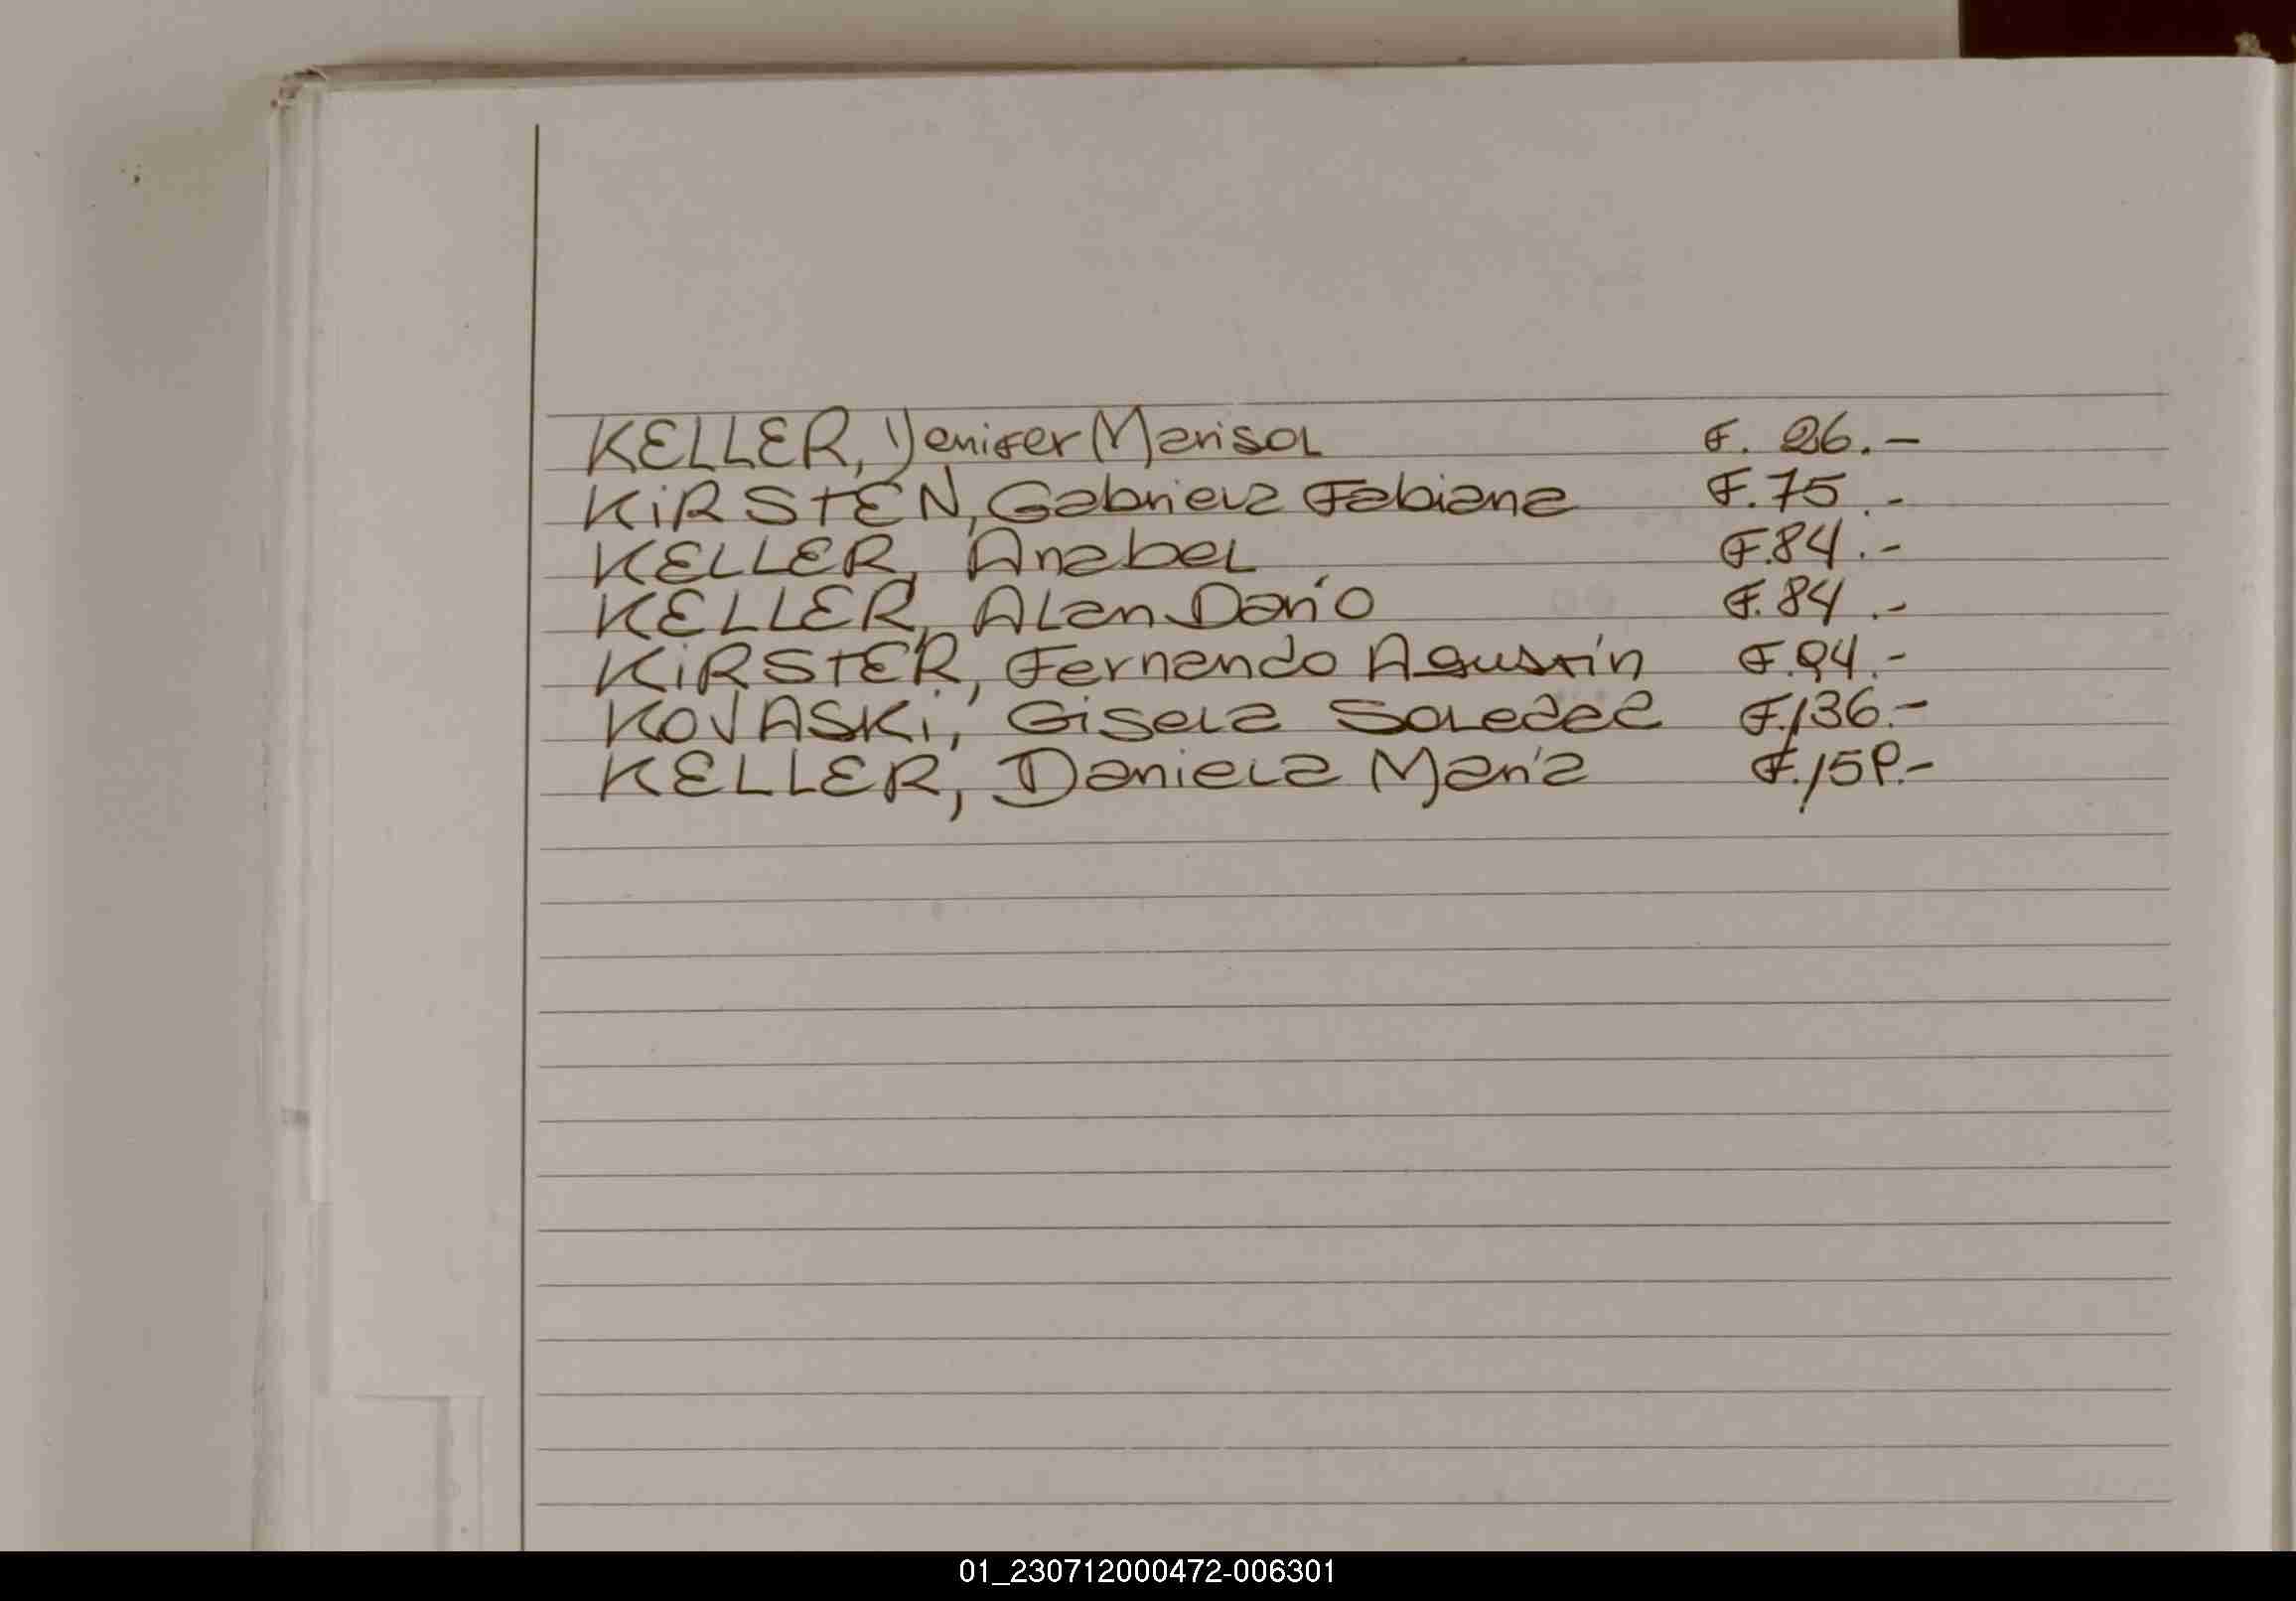 KELLER, Yenifer Marisol F. 26.-
KiRSTEN, Gabriela Fabiana F. 75.-
KELLER, Anabel F. 84.-
KELLER, Alan Darío F. 84.-
KiRSTER, Fernando Agustín F. 94.-
KOVASKi, Gisela Soledad F. 136.-
KELLER, Daniela María F. 159.-
01_230712000472-006301